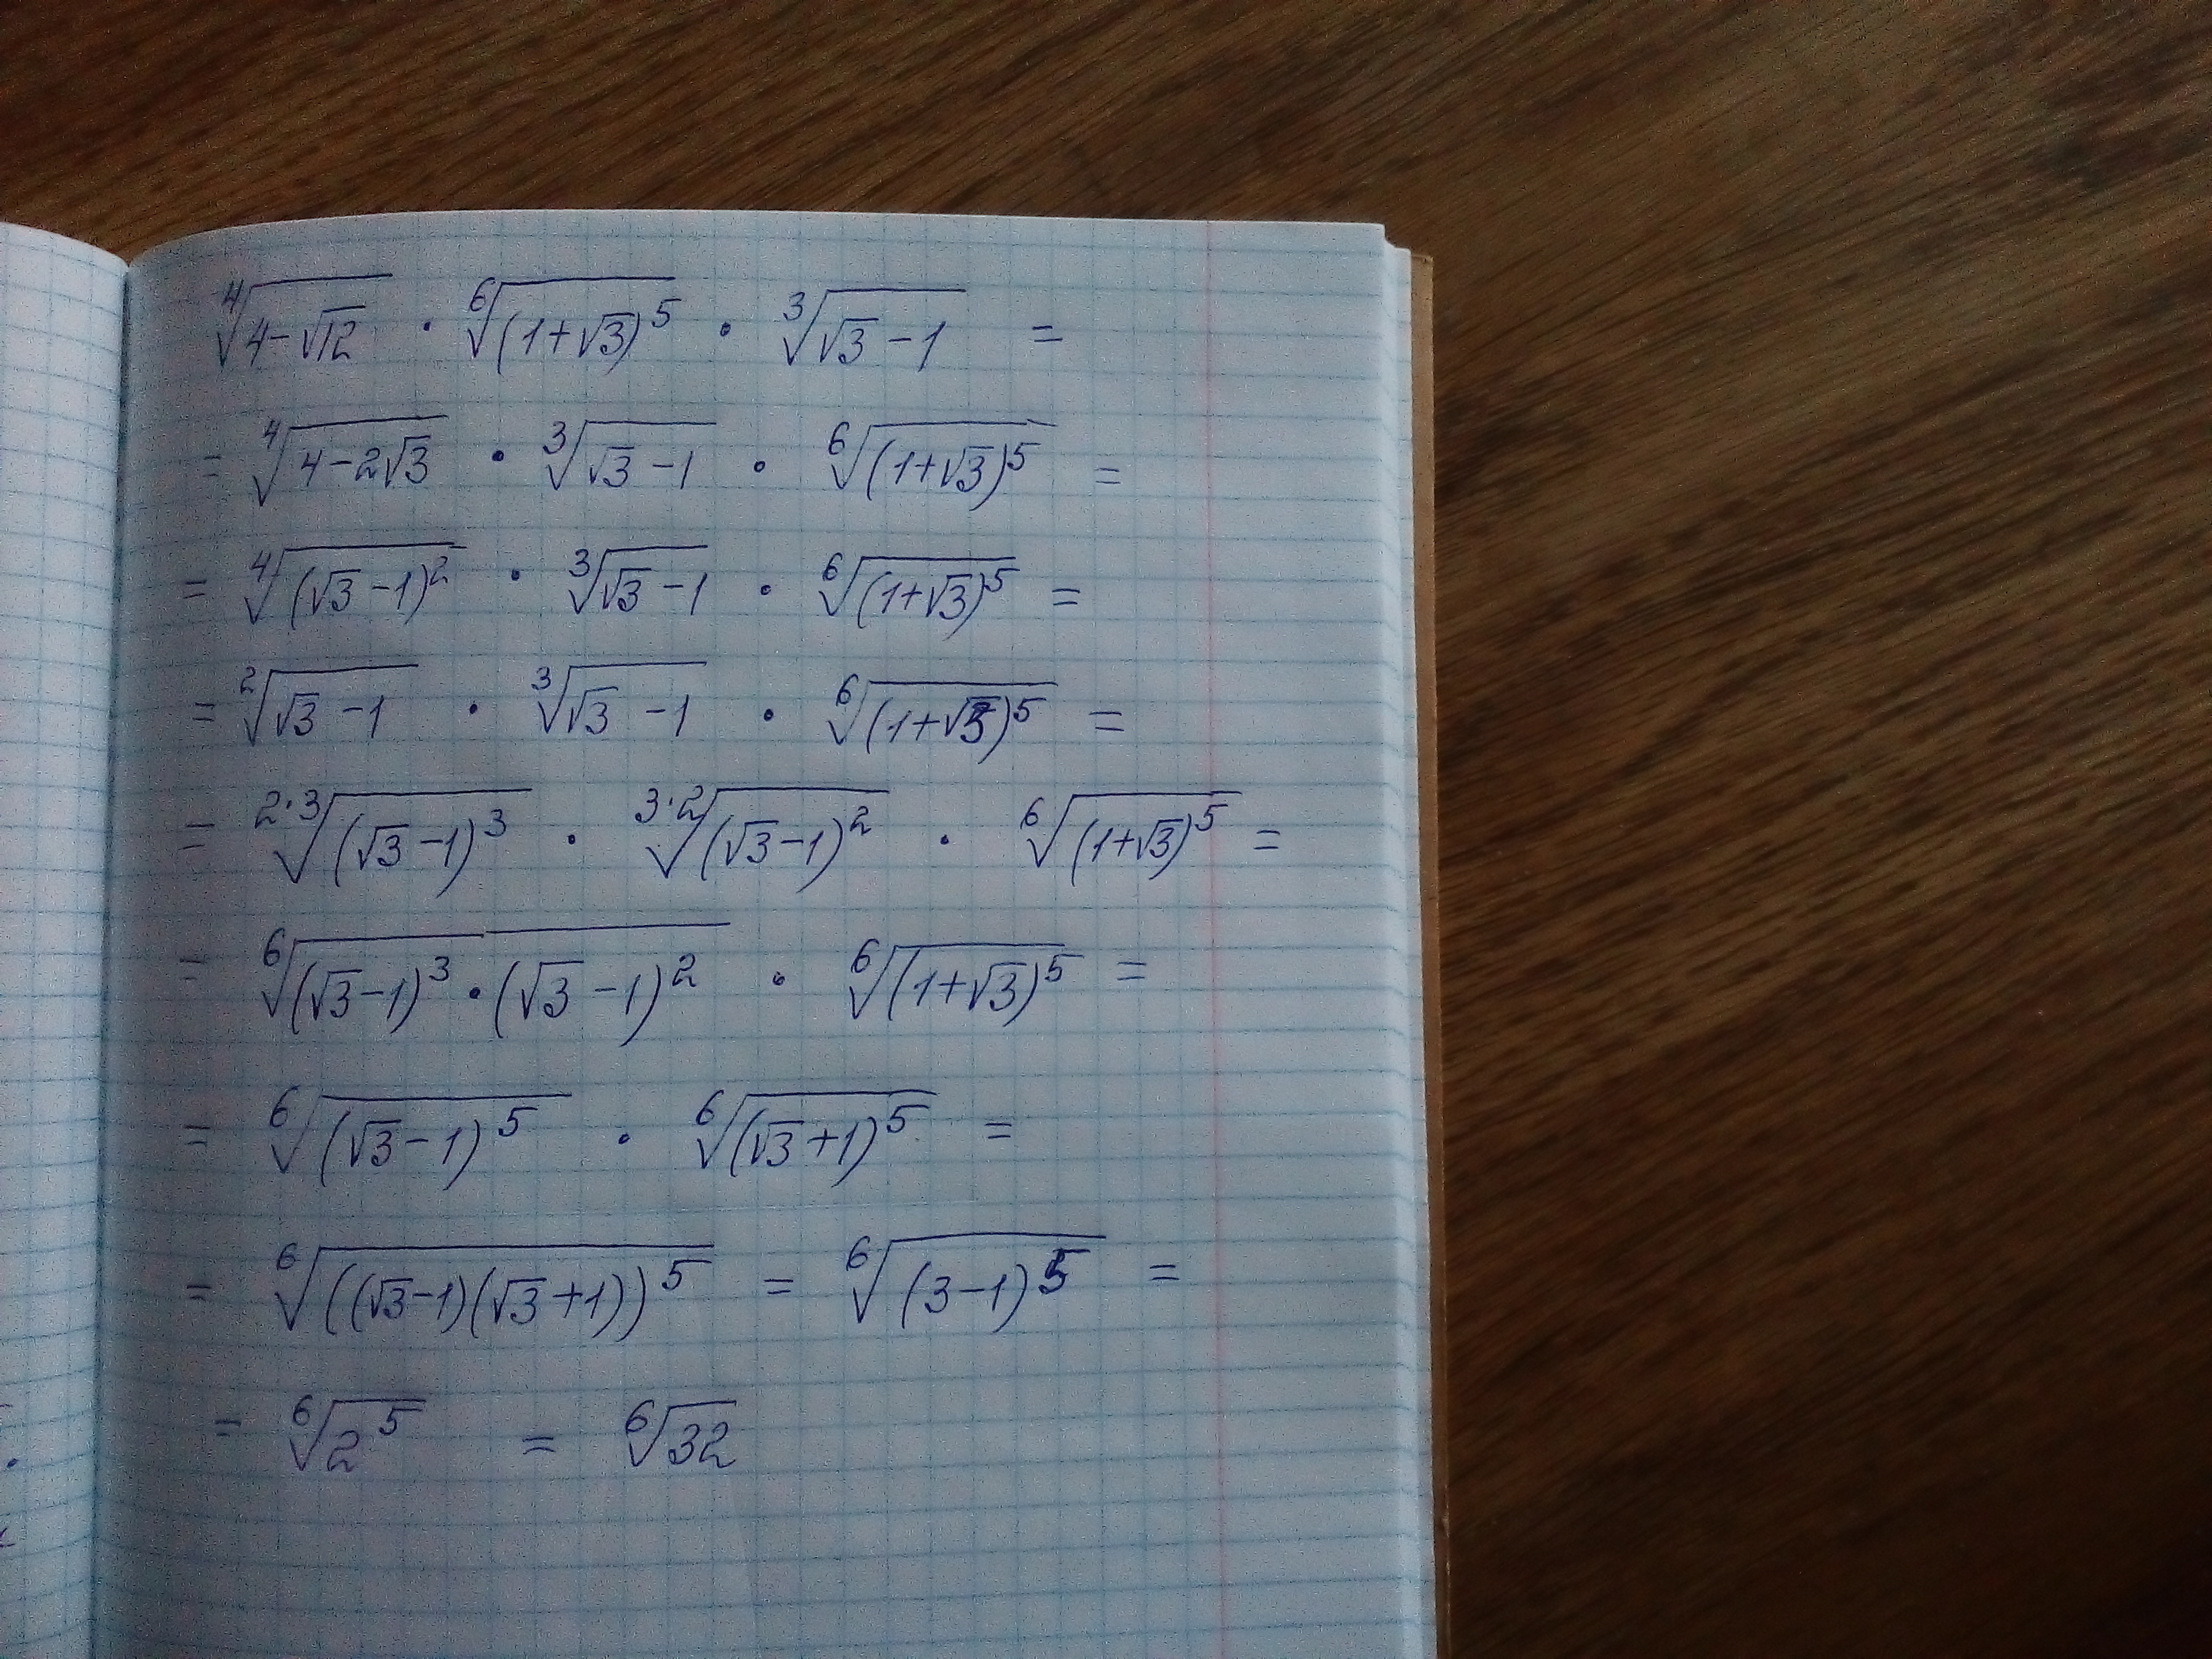 ⁴√(4-√12) · ⁶√((1+√3)⁵) · ³√(√3-1) =
= ⁴√(4-2√3) · ³√(√3-1) · ⁶√((1+√3)⁵) =
= ⁴√((√3-1)²) · ³√(√3-1) · ⁶√((1+√3)⁵) =
= ²√(√3-1) · ³√(√3-1) · ⁶√((1+√3)⁵) =
= ²·³√((√3-1)³) · ³·²√((√3-1)²) · ⁶√((1+√3)⁵) =
= ⁶√((√3-1)³·(√3-1)²) · ⁶√((1+√3)⁵) =
= ⁶√((√3-1)⁵) · ⁶√((√3+1)⁵) =
= ⁶√(((√3-1)(√3+1))⁵) = ⁶√((3-1)⁵) =
= ⁶√(2⁵) = ⁶√32